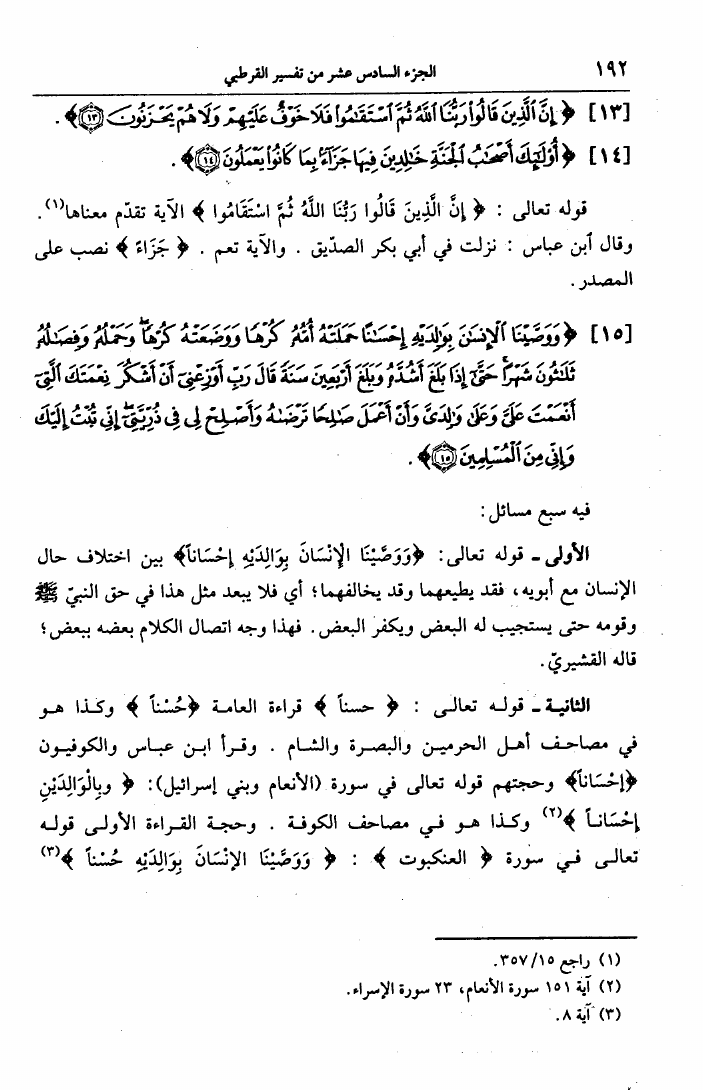 ١٩٢ الجزء السادس عشر من تفسير القرطبي
[١٣] ﴿ إِنَّ ٱلَّذِينَ قَالُوا۟ رَبُّنَا ٱللَّهُ ثُمَّ ٱسْتَقَـٰمُوا۟ فَلَا خَوْفٌ عَلَيْهِمْ وَلَا هُمْ يَحْزَنُونَ ۝١٣﴾ .
[١٤] ﴿ أُو۟لَـٰٓئِكَ أَصْحَـٰبُ ٱلْجَنَّةِ خَـٰلِدِينَ فِيهَا جَزَآءًۢ بِمَا كَانُوا۟ يَعْمَلُونَ ۝١٤﴾ .
قوله تعالى : ﴿ إِنَّ الَّذِينَ قَالُوا رَبُّنَا اللَّهُ ثُمَّ اسْتَقَامُوا ﴾ الآية تقدّم معناها(١).
وقال ٱبن عباس : نزلت في أبي بكر الصدّيق . والآية تعم . ﴿ جَزَاءً ﴾ نصب على
المصدر.
[١٥] ﴿ وَوَصَّيْنَا ٱلْإِنسَـٰنَ بِوَٰلِدَيْهِ إِحْسَـٰنًا حَمَلَتْهُ أُمُّهُۥ كُرْهًا وَوَضَعَتْهُ كُرْهًا وَحَمْلُهُۥ وَفِصَـٰلُهُۥ
ثَلَـٰثُونَ شَهْرًا حَتَّىٰٓ إِذَا بَلَغَ أَشُدَّهُۥ وَبَلَغَ أَرْبَعِينَ سَنَةً قَالَ رَبِّ أَوْزِعْنِىٓ أَنْ أَشْكُرَ نِعْمَتَكَ ٱلَّتِىٓ
أَنْعَمْتَ عَلَىَّ وَعَلَىٰ وَٰلِدَىَّ وَأَنْ أَعْمَلَ صَـٰلِحًا تَرْضَىٰهُ وَأَصْلِحْ لِى فِى ذُرِّيَّتِىٓ إِنِّى تُبْتُ إِلَيْكَ
وَإِنِّى مِنَ ٱلْمُسْلِمِينَ ۝١٥﴾ .
فيه سبع مسائل:
الأولى ـ قوله تعالى: ﴿وَوَصَّيْنَا الْإِنْسَانَ بِوَالِدَيْهِ إِحْسَاناً﴾ بين اختلاف حال
الإنسان مع أبويه، فقد يطيعهما وقد يخالفهما؛ أي فلا يبعد مثل هذا في حق النبيّ ﷺ
وقومه حتى يستجيب له البعض ويكفر البعض. فهذا وجه اتصال الكلام بعضه ببعض؛
قاله القشيريّ.
الثانية ـ قوله تعالى : ﴿ حسناً ﴾ قراءة العامة ﴿حُسْناً ﴾ وكذا هو
في مصاحف أهل الحرمين والبصرة والشام . وقرأ ابن عباس والكوفيون
﴿إِحْسَاناً﴾ وحجتهم قوله تعالى في سورة (الأنعام وبني إسرائيل): ﴿ وبِالْوَالِدَيْنِ
إِحْسَاناً ﴾(٢) وكذا هو في مصاحف الكوفة . وحجة القراءة الأولى قوله
تعالى في سورة ﴿ العنكبوت ﴾ : ﴿ وَوَصَّيْنَا الإِنْسَانَ بِوَالِدَيْهِ حُسْناً ﴾(٣)
(١) راجع ٣٥٧/١٥.
(٢) آية ١٥١ سورة الأنعام، ٢٣ سورة الإسراء.
(٣) آية ٨.